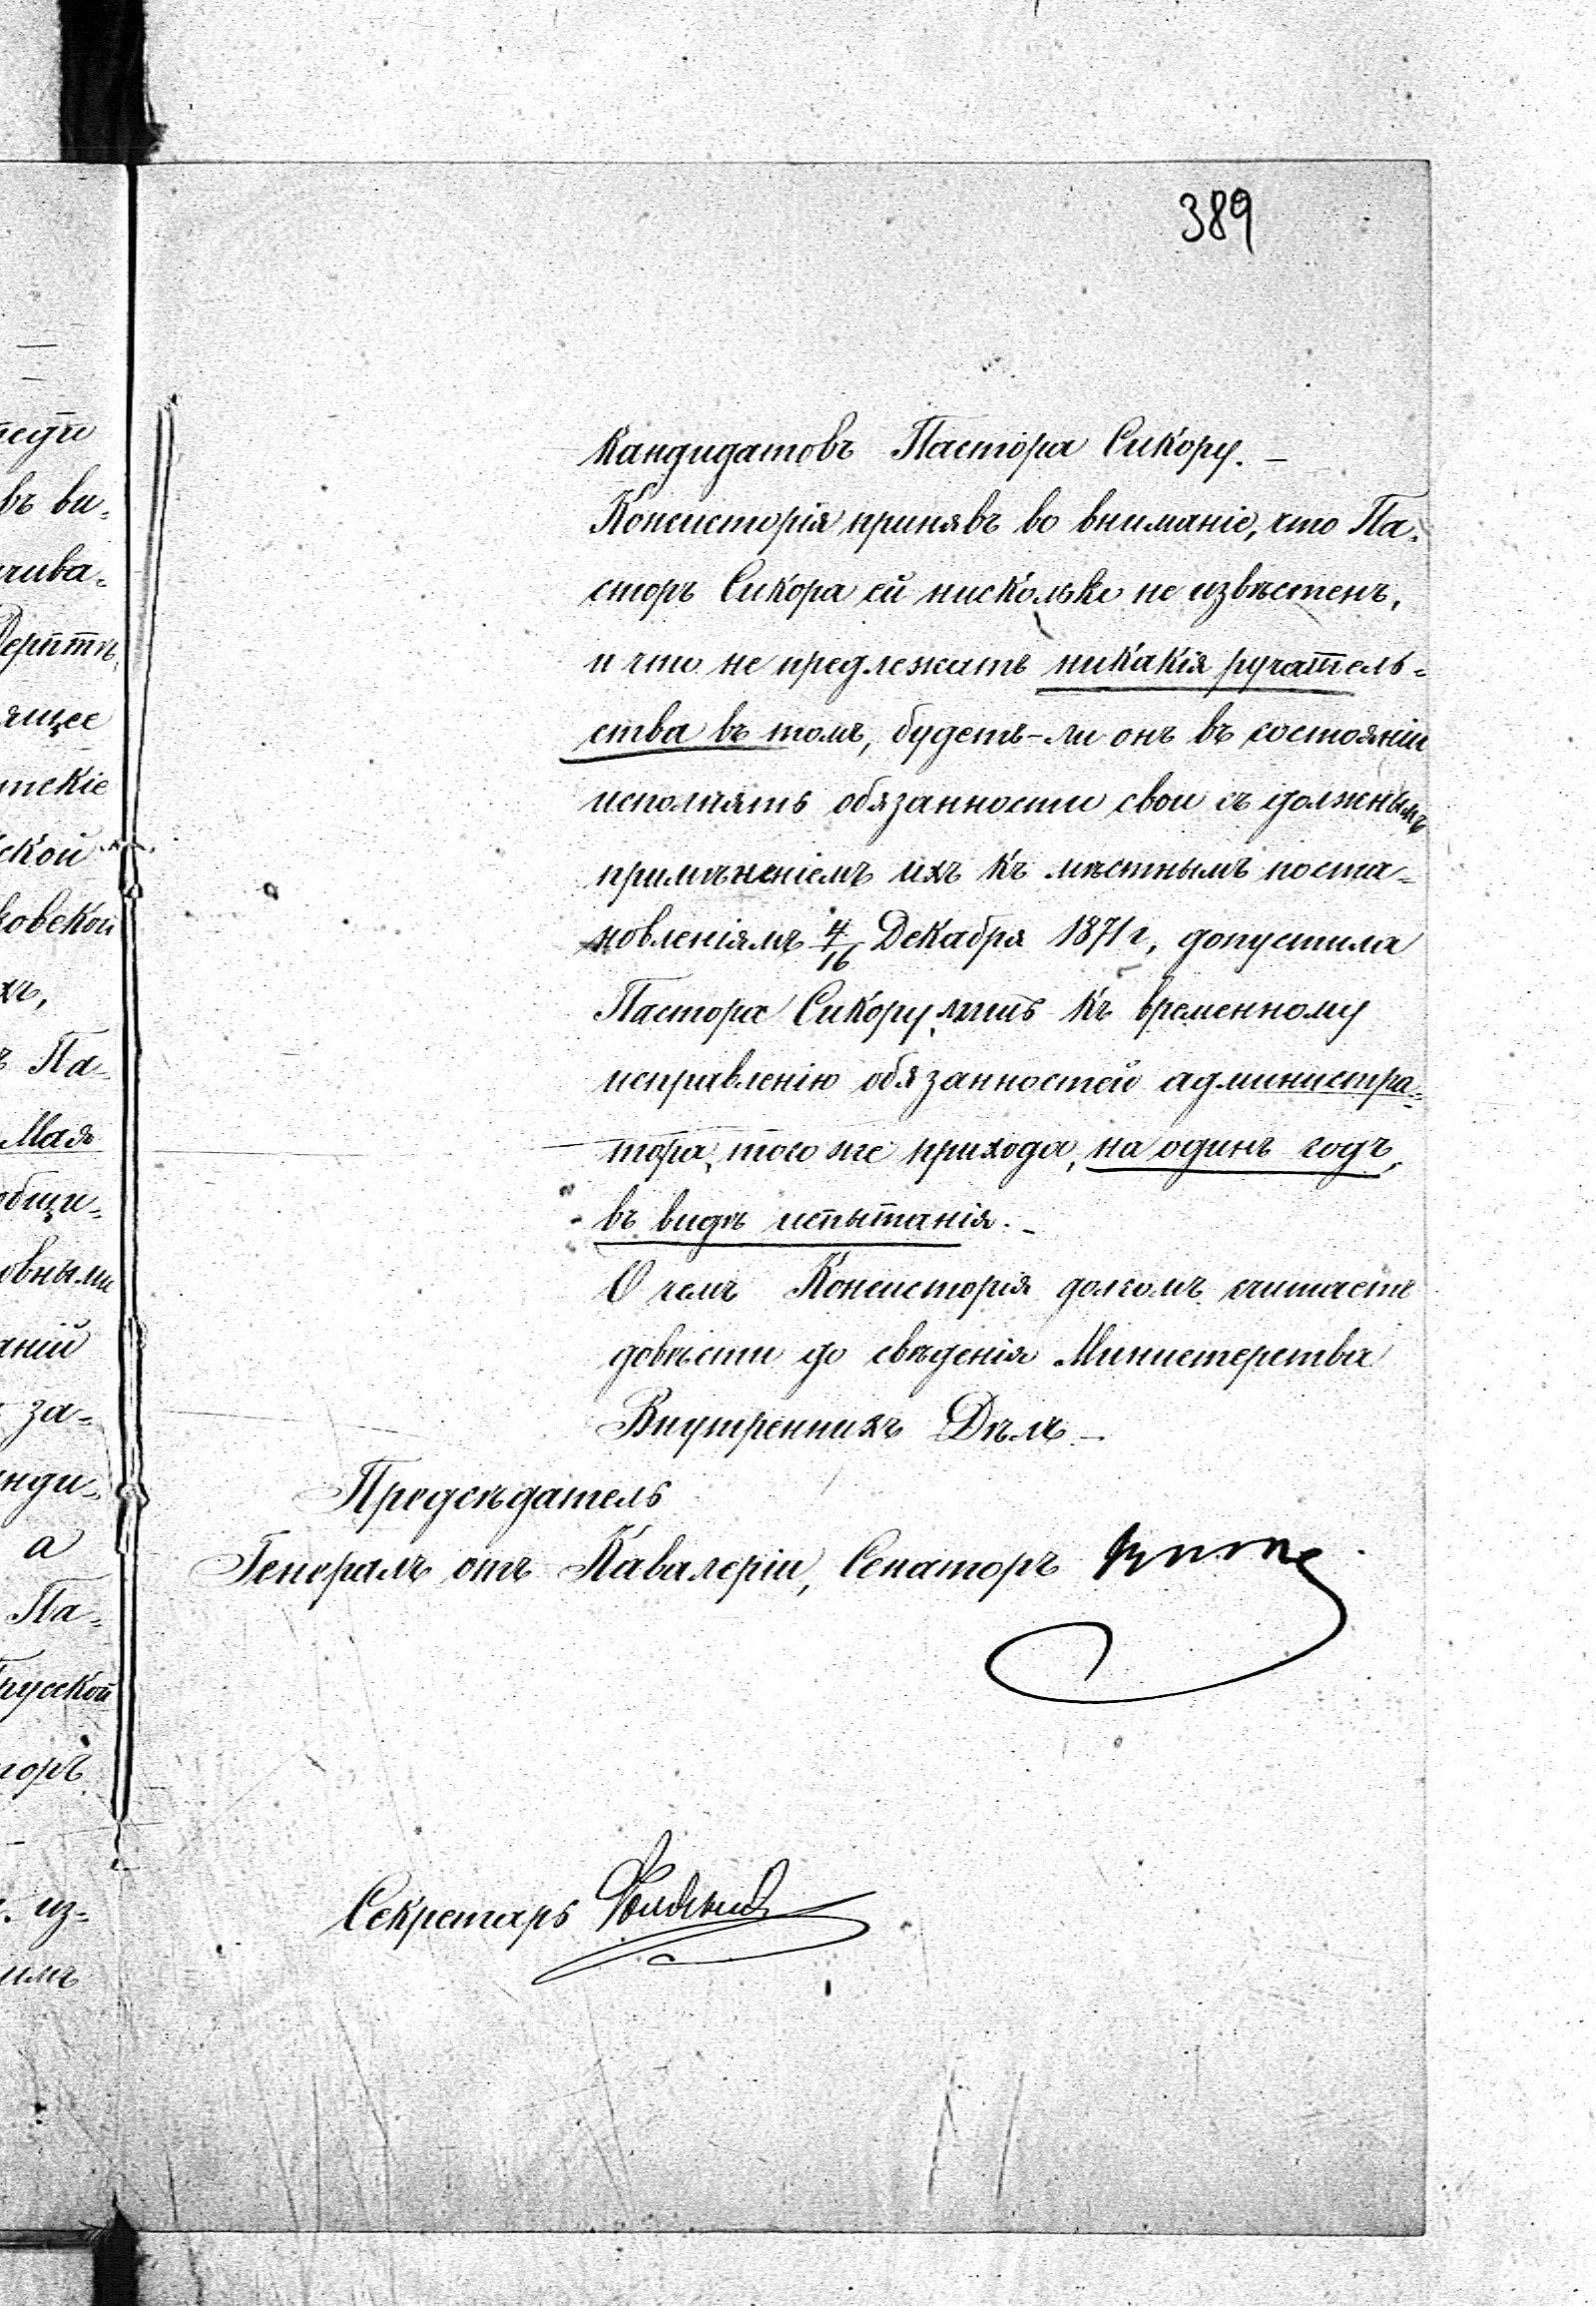 389
кандидатовъ Пастора Сикору. —
Консисторія принявъ во вниманіе, что Па-
сторъ Сикора ей нисколько не извѣстенъ,
и что не предлежатъ никакія ручатель-
ства въ томъ, будетъ-ли онъ въ состояніи
исполнять обязанности свои съ должнымъ
примѣненіемъ ихъ къ мѣстнымъ поста-
новленіямъ 4/16 Декабря 1871 г, допустила
Пастора Сикору лишь къ временному
исправленію обязанностей администра-
тора, того же прихода, на одинъ годъ,
въ видѣ испытанія. —
О чемъ Консисторія долгомъ считаетъ
довѣсти до свѣденія Министерства
Внутреннихъ Дѣлъ —
Предсѣдатель
Генералъ отъ Кавалеріи, Сенаторъ
Секретарь